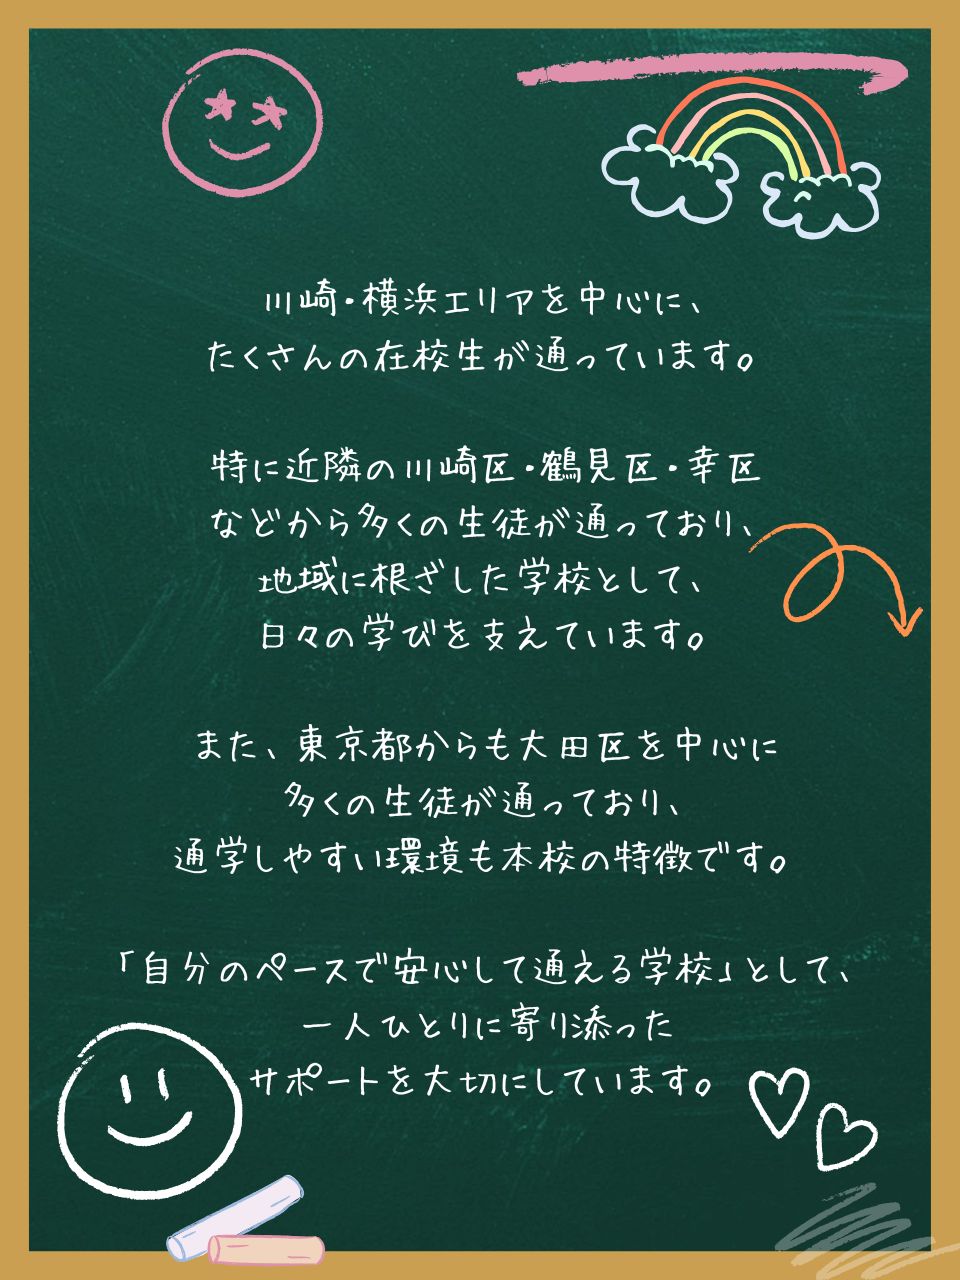 川崎・横浜エリアを中心に、
たくさんの在校生が通っています。
特に近隣の川崎区・鶴見区・幸区
などから多くの生徒が通っており、
地域に根ざした学校として、
日々の学びを支えています。
また、東京都からも大田区を中心に
多くの生徒が通っており、
通学しやすい環境も本校の特徴です。
「自分のペースで安心して通える学校」として、
一人ひとりに寄り添った
サポートを大切にしています。